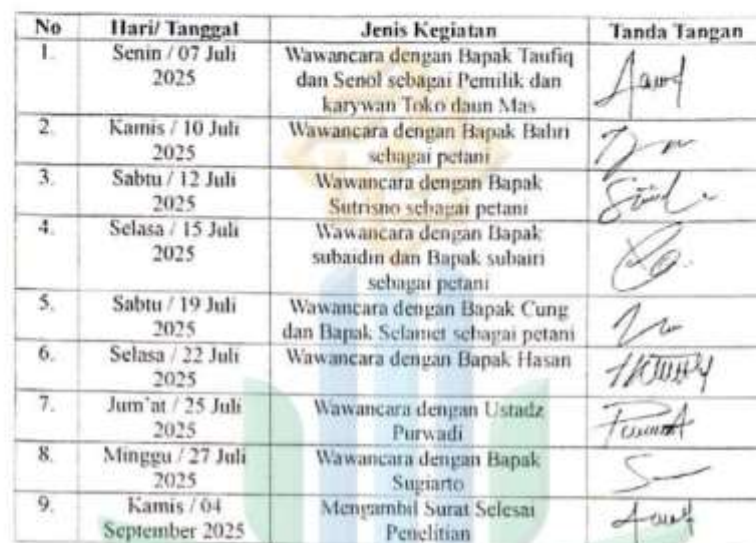 No Hari/ Tanggal Jenis Kegiatan Tanda Tangan
1. Senin / 07 Juli 2025 Wawancara dengan Bapak Taufiq
dan Senol sebagai Pemilik dan
karywan Toko daun Mas
2. Kamis / 10 Juli 2025 Wawancara dengan Bapak Bahri
sebagai petani
3. Sabtu / 12 Juli 2025 Wawancara dengan Bapak
Sutrisno sebagai petani
4. Selasa / 15 Juli 2025 Wawancara dengan Bapak
subaidin dan Bapak subairi
sebagai petani
5. Sabtu / 19 Juli 2025 Wawancara dengan Bapak Cung
dan Bapak Selamet sebagai petani
6. Selasa / 22 Juli 2025 Wawancara dengan Bapak Hasan
7. Jum'at / 25 Juli 2025 Wawancara dengan Ustadz
Purwadi
8. Minggu / 27 Juli 2025 Wawancara dengan Bapak
Sugiarto
9. Kamis / 04 September 2025 Mengambil Surat Selesai
Penelitian